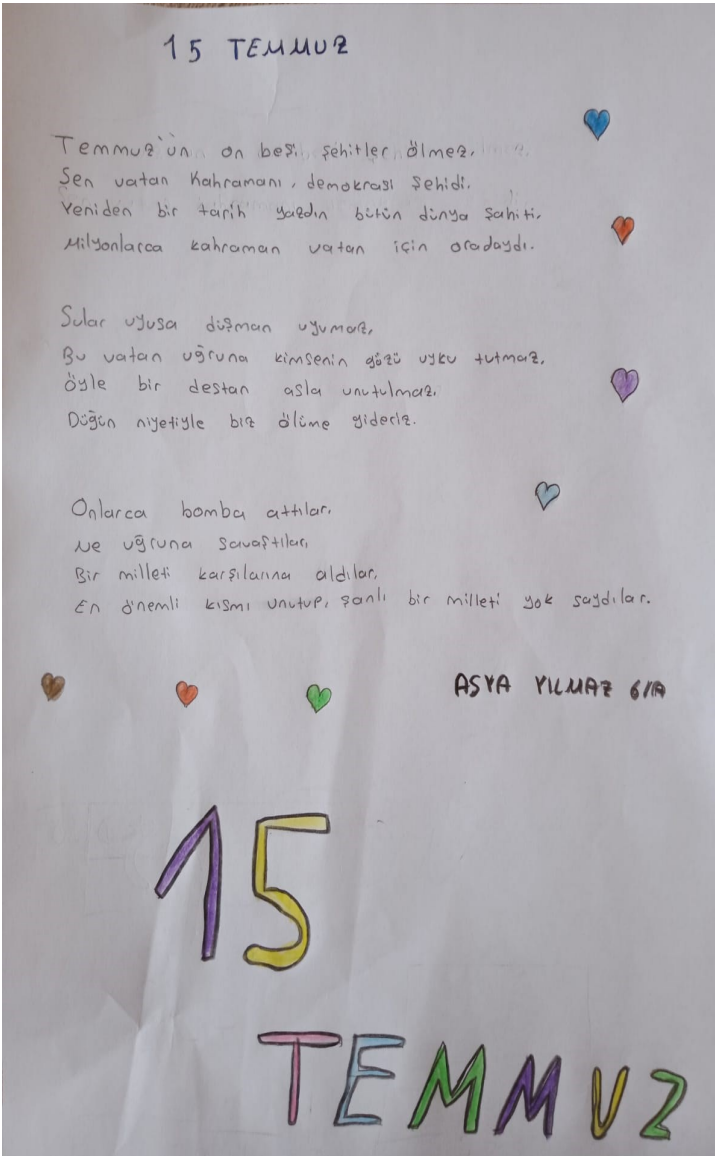 15 TEMMUZ
Temmuz'un on beşi, şehitler ölmez.
Sen vatan Kahramanı, demokrasi Şehidi.
Yeniden bir tarih yazdın bütün dünya şahiti.
Milyonlarca kahraman vatan için oradaydı.
Sular uyusa düşman uyumaz,
Bu vatan uğruna kimsenin gözü uyku tutmaz.
öyle bir destan asla unutulmaz.
Düğün niyetiyle biz ölüme gideriz.
Onlarca bomba attılar.
Ne uğruna savaştılar,
Bir milleti karşılarına aldılar,
En önemli kısmı unutup, şanlı bir milleti yok saydılar.
ASYA YILMAZ 6/A
15
TEMMUZ